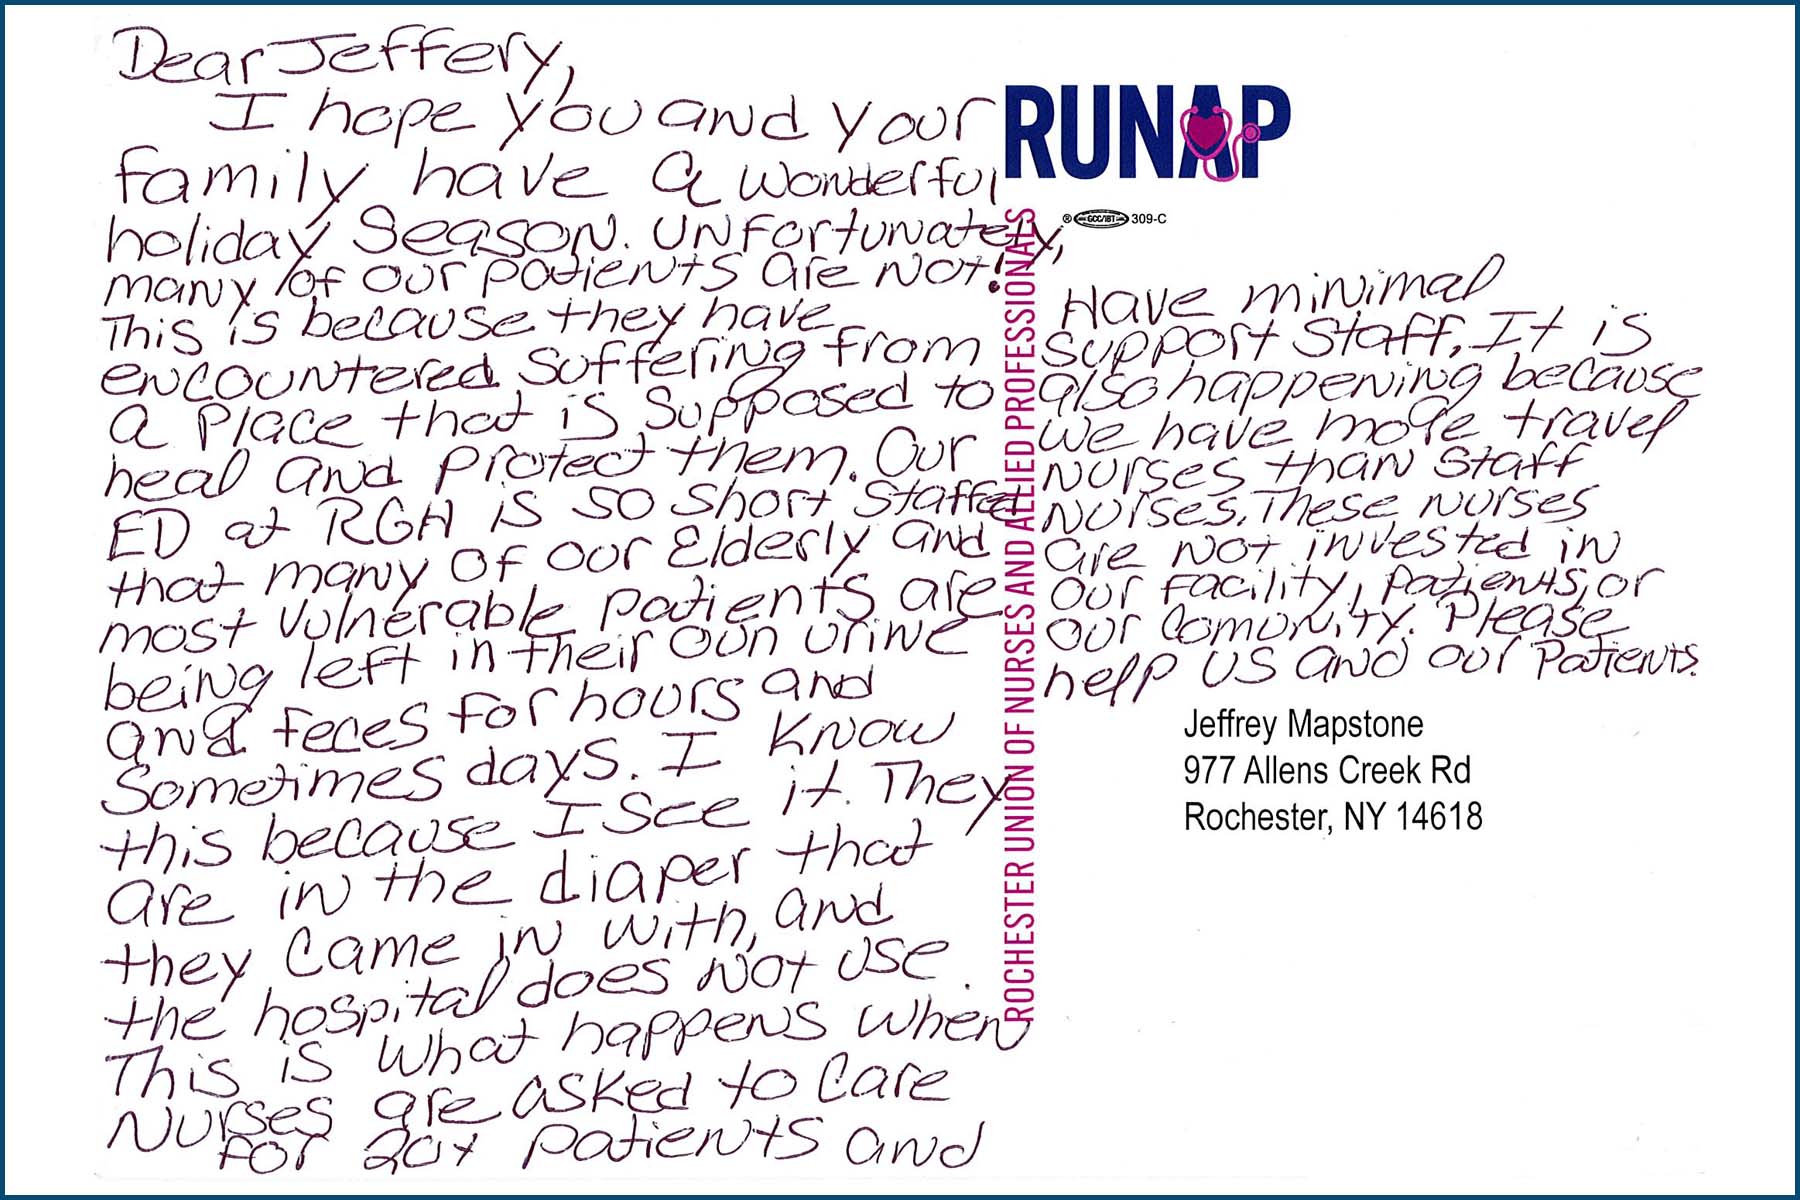 Dear Jeffery,
I hope you and your
family have a wonderful
holiday Season. Unfortunately,
many of our patients are Not!
This is because they have
encountered suffering from
a place that is supposed to
heal and protect them. Our
ED at RGH is so short staffed
that many of our Elderly and
most vulnerable patients are
being left in their own urine
and feces for hours and
Sometimes days. I know
this because I see it. They
are in the diaper that
they came in with, and
the hospital does Not use.
This is what happens when
Nurses are asked to care
for 20+ patients and
RUNAP
® GCC/IBT 309-C
ROCHESTER UNION OF NURSES AND ALLIED PROFESSIONALS
Have minimal
support staff. It is
also happening because
we have more travel
Nurses than staff
Nurses. These nurses
are Not invested in
our facility, patients, or
our Comunity. Please
help us and our Patients.
Jeffrey Mapstone
977 Allens Creek Rd
Rochester, NY 14618